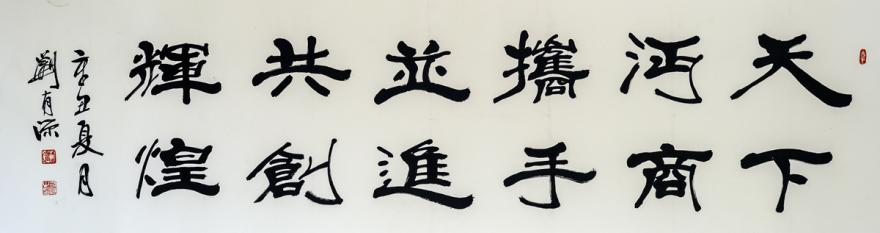 天下
沔商
攜手
並進
共創
輝煌
辛丑夏月
劉